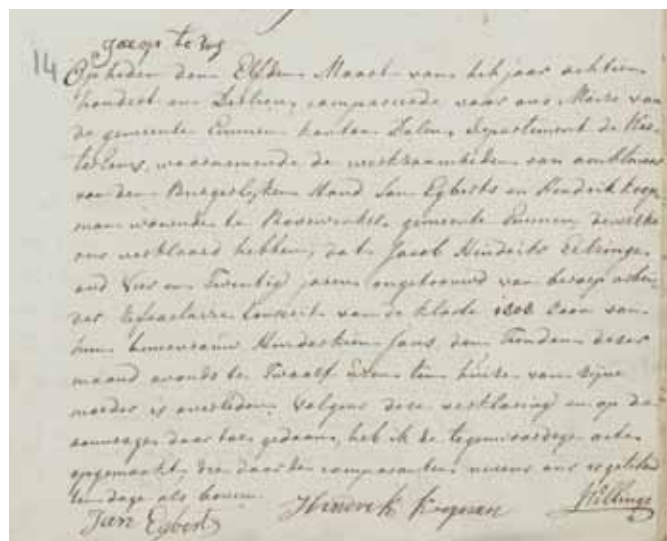 14
Op heden den Elfden Maart van het jaar achtien
hondert en Dertien, compareerde voor ons Maire van
de gemeente Emmen kanton Dalen, Departement de Wes-
ter Eems, waarnemende de werkzaamheden van ambtenaar
van den Burgerlyken Stand Jan Egberts en Hendrik Koop
man wonende te gemeente Emmen, dewelke
ons verklaard hebben, dat Jacob Hindriks
oud Vier en Twintig jaren ongetrouwd van beroep arbei
der Conscrit van de klasse 1808 Zoon van
Jans, den Tienden dezer
maand avonds te Twaalf uren ten huize van zijne
moeder is overleden. Volgens deze verklaring en op de
aanvrage daar toe gedaan, heb ik de tegenwoordige acte
opgemaakt, die daar de comparanten nevens ons
ten dage als boven.
Jan Egberts Hindrik Kopman